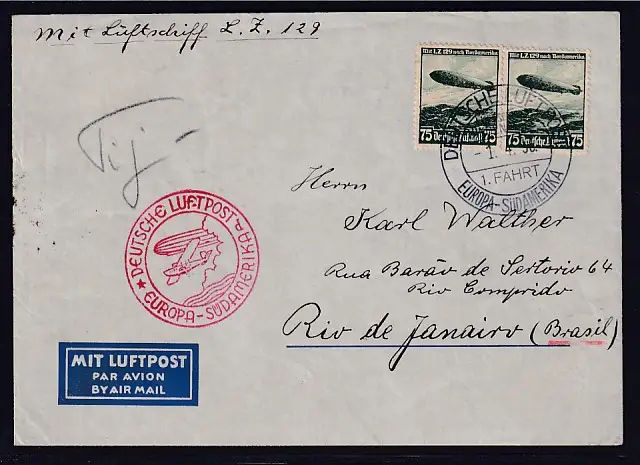 Mit Luftschiff L. Z. 129
Mit LZ 129 nach Nordamerika
Mit LZ 129 nach Nordamerika
75 Deutsche Luftpost 75
75 Deutsche Luftpost 75
DEUTSCHE LUFTPOST
-1.4.36.
1. FAHRT
EUROPA-SÜDAMERIKA
DEUTSCHE LUFTPOST
EUROPA-SÜDAMERIKA
Herrn
Karl Walther
Rua Barão de Sertorio 64
Rio Comprido
Rio de Janairo (Brasil)
MIT LUFTPOST
PAR AVION
BY AIR MAIL